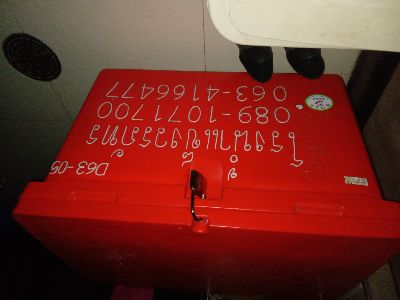 D63-05
โรงน้ำแข็งวรภัทร
089-1071700
063-4166477